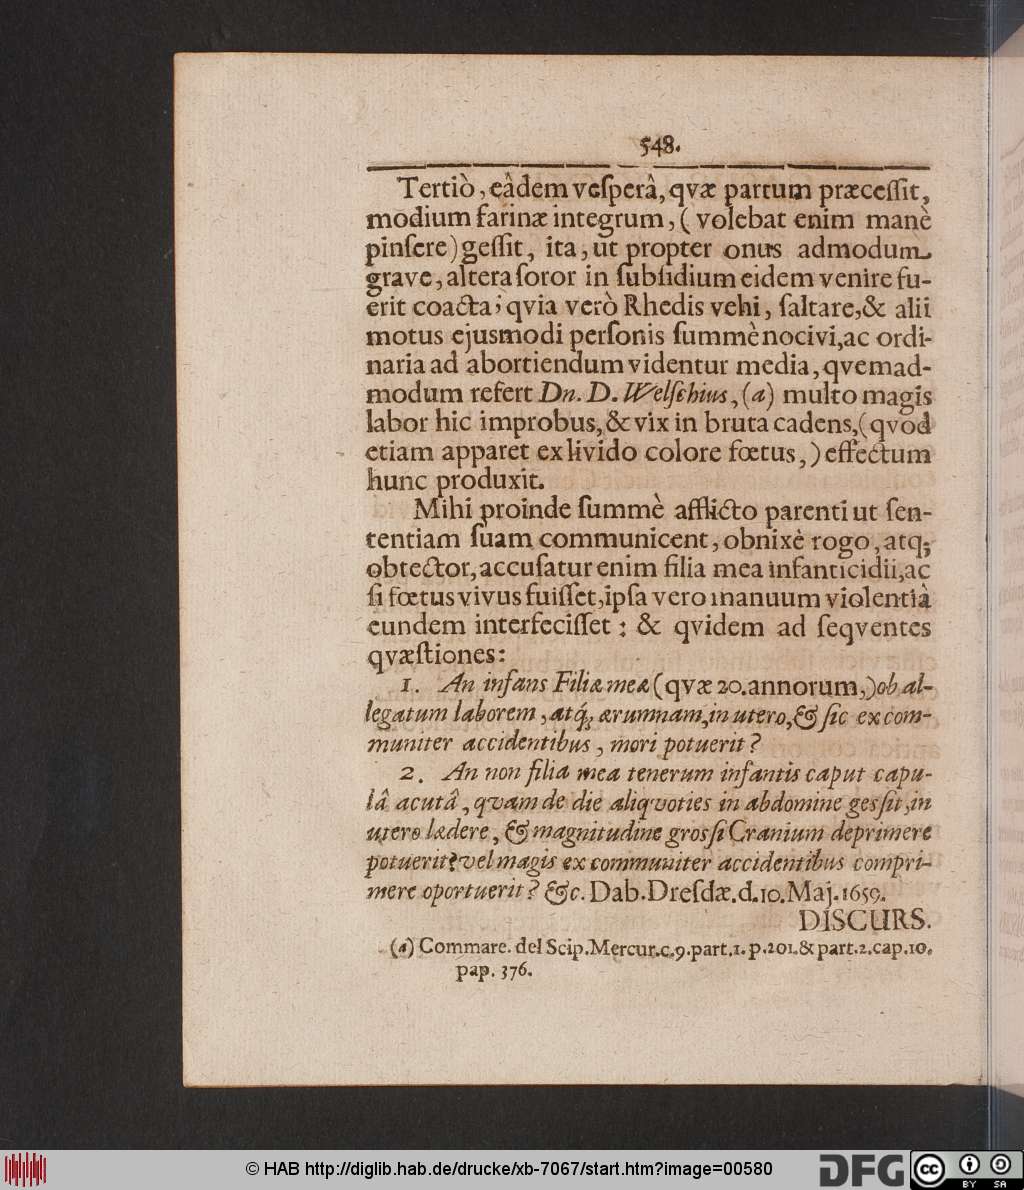 548.
Tertiò, eâdem vesperâ, qvæ partum præcessit,
modium farinæ integrum, ( volebat enim manè
pinsere) gessit, ita, ut propter onus admodum
grave, altera soror in subsidium eidem venire fu-
erit coacta; qvia verò Rhedis vehi, saltare, & alii
motus ejusmodi personis summè nocivi, ac ordi-
naria ad abortiendum videntur media, qvemad-
modum refert Dn. D. Welschius, (a) multo magis
labor hic improbus, & vix in bruta cadens, (qvod
etiam apparet ex livido colore fœtus, ) effectum
hunc produxit.
Mihi proinde summè afflicto parenti ut sen-
tentiam suam communicent, obnixè rogo, atq;
obtector, accusatur enim filia mea infanticidii, ac
si fœtus vivus fuisset, ipsa vero manuum violentiâ
eundem interfecisset : & qvidem ad seqventes
qvæstiones:
1. An infans Filiæ meæ (qvæ 20. annorum,) ob al-
legatum laborem, atq́; ærumnam, in utero, & sic ex com-
muniter accidentibus, mori potuerit?
2. An non filia mea tenerum infantis caput capu-
lâ acutâ, qvam de die aliqvoties in abdomine gessit, in
utero lædere, & magnitudine grossi Cranium deprimere
potuerit? vel magis ex communiter accidentibus compri-
mere oportuerit? &c. Dab. Dresdæ. d. 10. Maj. 1659.
DISCURS.
(a) Commare. del Scip. Mercur. c. 9. part. 1. p. 201. & part. 2. cap. 10.
pap. 376.
© HAB http://diglib.hab.de/drucke/xb-7067/start.htm?image=00580
DFG
cc BY SA